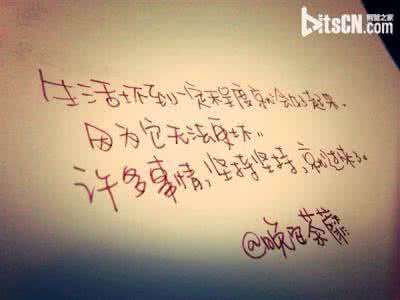 网管之家
bitsCN.com
生活坏到一定程度就会好起来,
因为它无法更坏。
许多事情,坚持坚持,就过来了。
@晚荼蘼